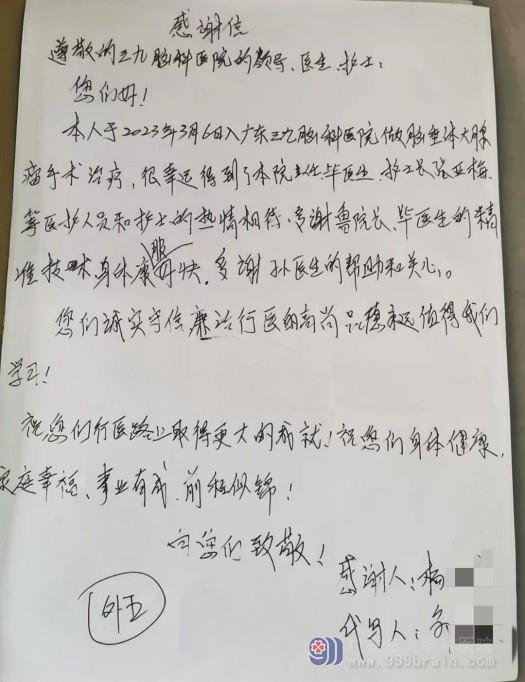 感谢信
尊敬的三九脑科医院的领导、医生、护士:
您们好!
本人于2023年3月6日入广东三九脑科医院做脑垂体大腺
瘤手术治疗,很幸运得到了本院主任毕医生、护士长阮亚梅
等医护人员和护士的热情相待,多谢鲁院长、毕医生的精
准技术,身体康服好快,多谢孙医生的帮助和关心。
您们诚实守信廉洁行医的高尚品德永远值得我们
学习!
祝您们行医路上取得更大的成就!祝您们身体健康,
家庭幸福、事业有成、前程似锦!
向您们致敬!
感谢人:杨
代写人:
外五
医院
www.999brain.com